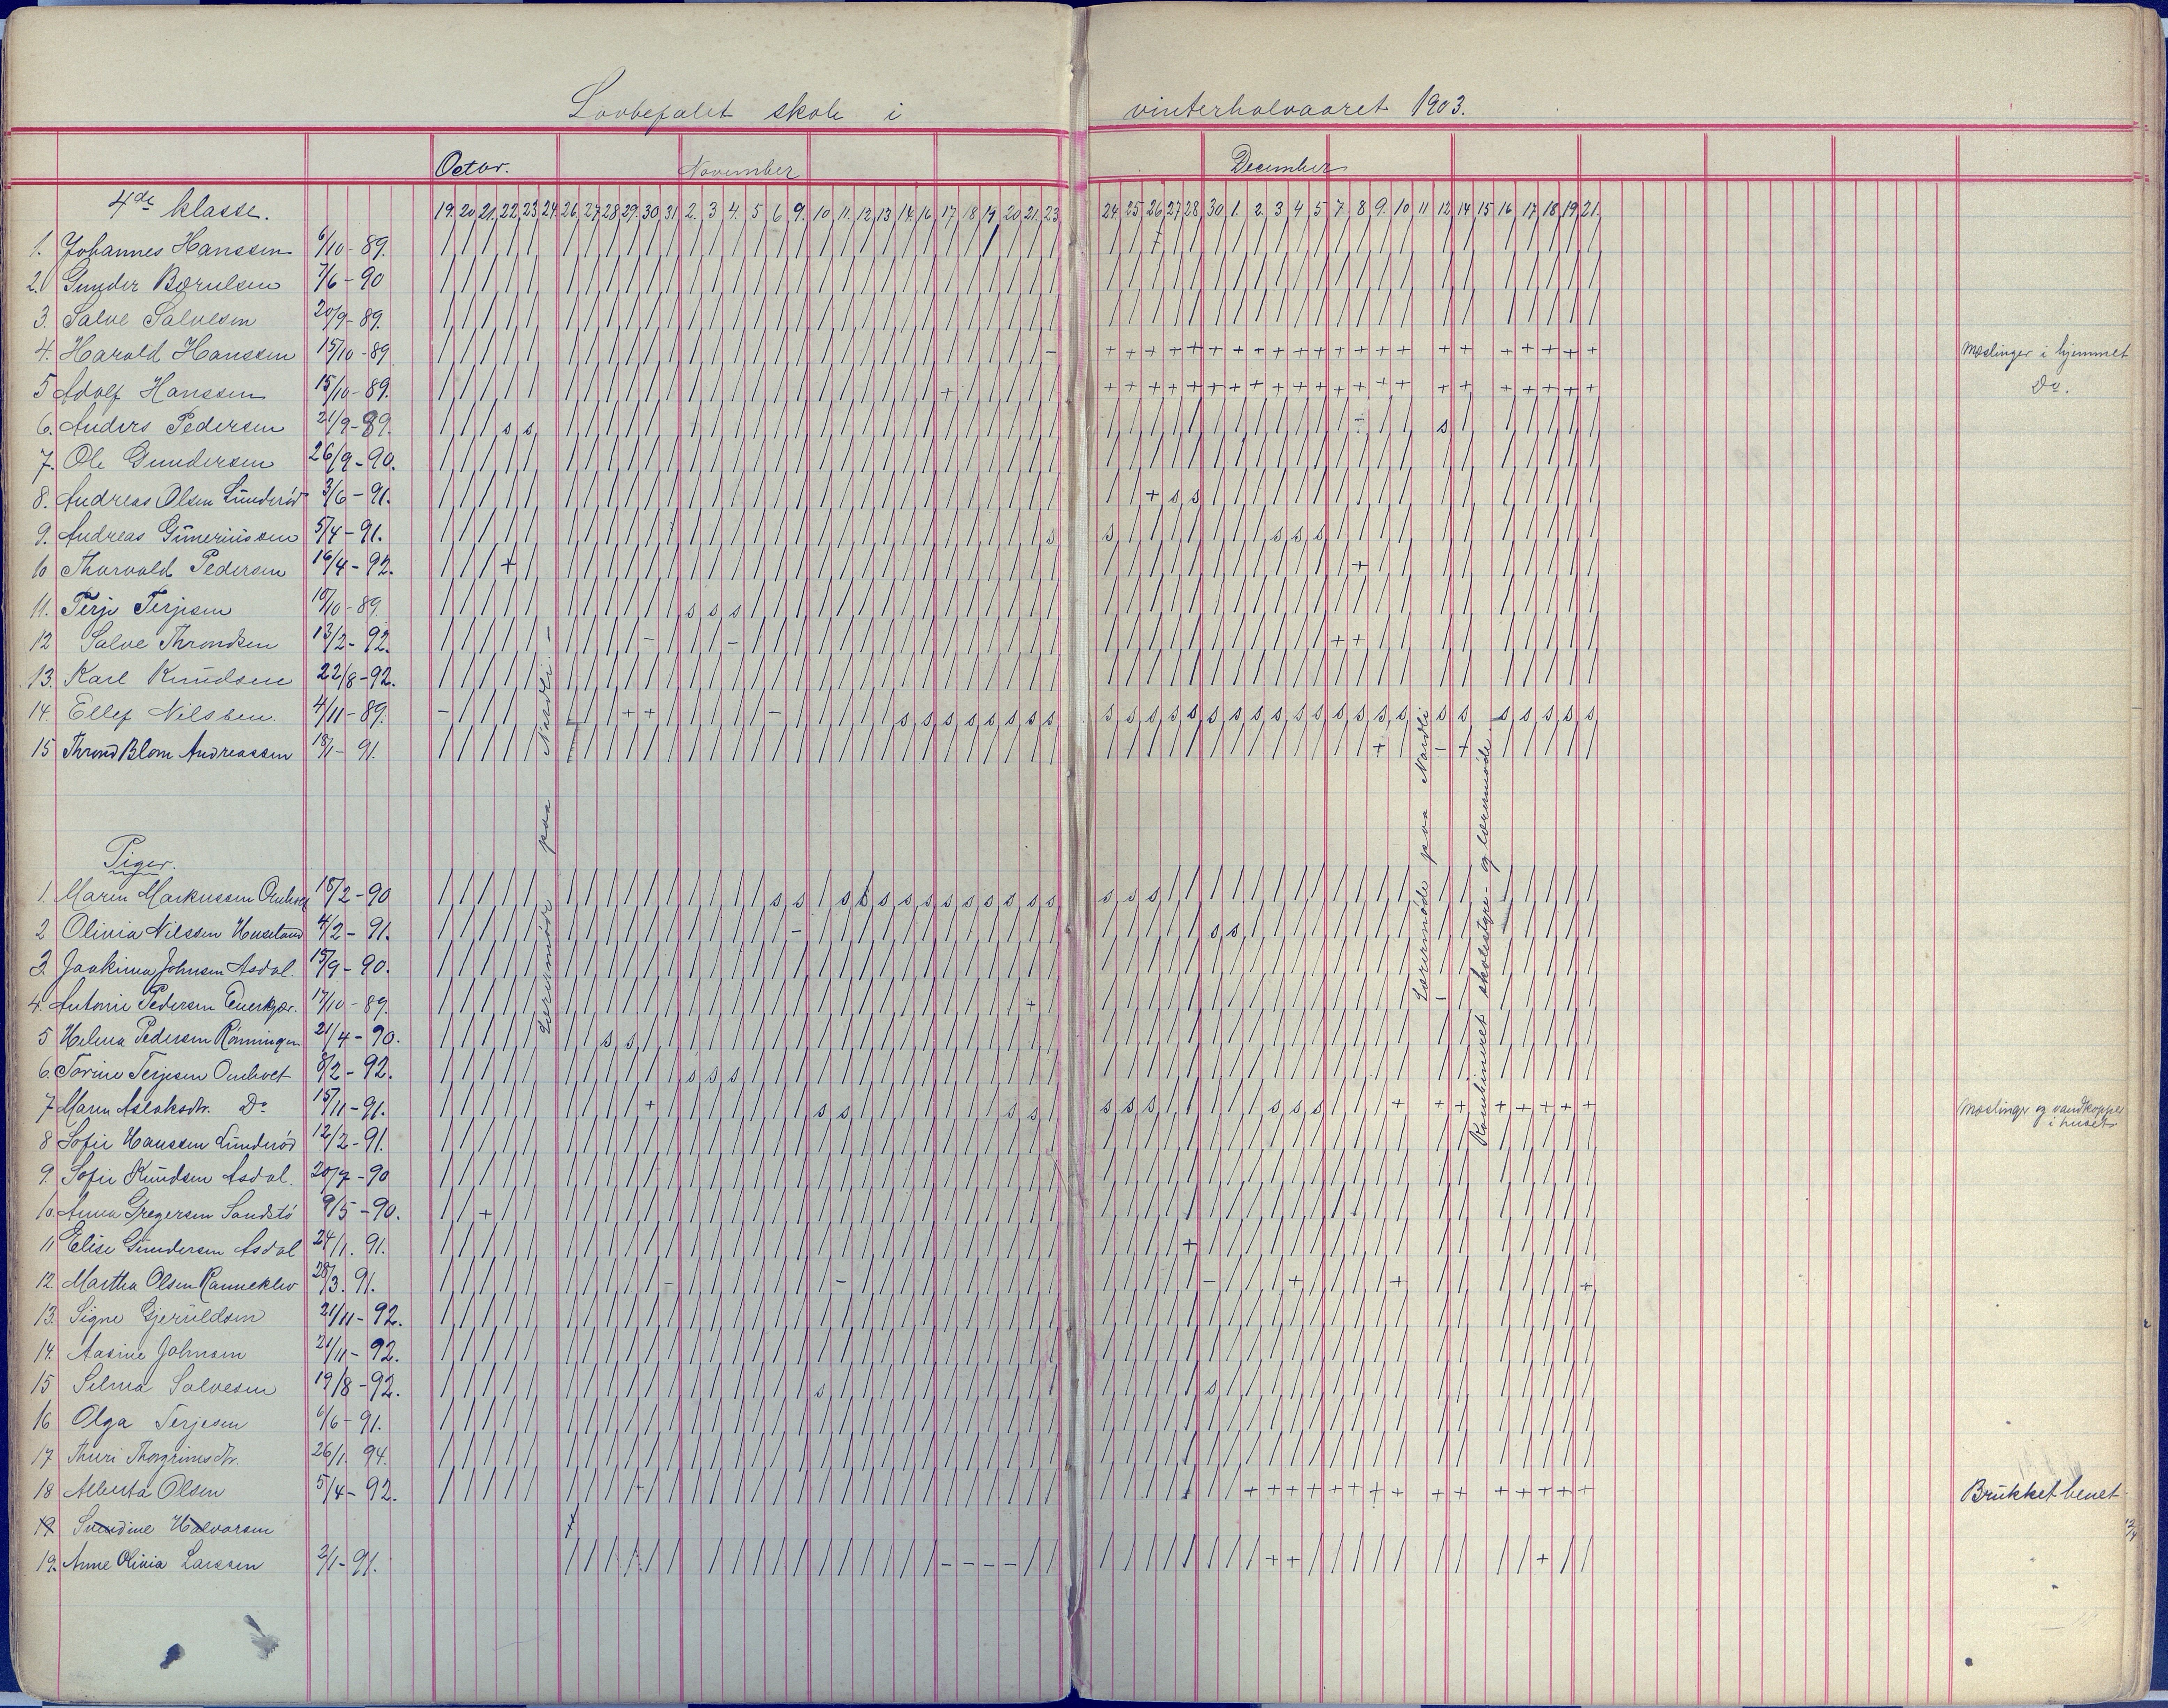 Lovbefalet skole i vinterhalvaaret 1903.
Octbr. November December
4de klasse. 19. 20 21. 22 23 24. 26 27 28 29 30 31 2. 3 4. 5 6 9. 10 11. 12 13 14 16 17 18 19 20 21. 23 24 25 26 27 28 30 1. 2. 3 4 5 7 8 9. 10 11 12 14 15 16 17 18 19 21.
1. Johannes Hanssen 6/10-89.
2. Gunder Børulsen 7/6-90
3. Salve Salvesen 20/9-89.
4. Harald Hanssen 15/10-89 Mæslinger i hjemmet
5 Adolf Hanssen 15/10-89. Do.
6. Anders Pedersen 21/9-89.
7. Ole Gundersen 26/9-90.
8. Andreas Olsen Lunderød 3/6-91.
9. Andreas Guneriussen 5/4-91.
10 Thorvald Pedersen 16/4-92.
11. Terje Terjesen 10/10-89.
12 Salve Throndsen 13/2-92.
13. Karl Knudsen 22/8-92.
14. Ellef Nilssen. 4/11-89.
15 Thrond Blom Andreassen 18/1-91.
Lærermøde paa Nardli.
Lærermøde paa Nardli
Kombineret skolestyre- og lærermøde.
Piger.
1. Maren Markussen 15/2-90
2 Olivia Nilssen 4/2-91.
3. Joakima Johnsen Asdal 15/9-90.
4. Antonie Pedersen 17/10-89.
5 Helena Pedersen Rønningen 21/4-90.
6. Torine Terjesen Omholt 8/2-92.
7 Maren Aslaksdtr. Do 15/11-91. Mæslinger og vandkopper i huset
8 Sofie Hanssen Lunderød 12/2-91.
9. Sofie Knudsen Asdal. 20/7-90
10. Anna Gregersen Sandstø 9/5-90.
11 Elise Gundersen Asdal 24/1. 91.
12. Martha Olsen Ranneklev 28/3. 91.
13. Signe Gjeruldsen 21/11-92.
14. Aasine Johnsen 21/11-92.
15 Selma Salvesen 19/8-92.
16 Olga Terjesen 6/6-91.
17 Thuri Thorgrimsdtr. 26/1. 94.
18 Alberta Olsen 5/4-92. Brukket benet
19 Halvorsen
19. Anne Olivia Larssen 2/1-91.